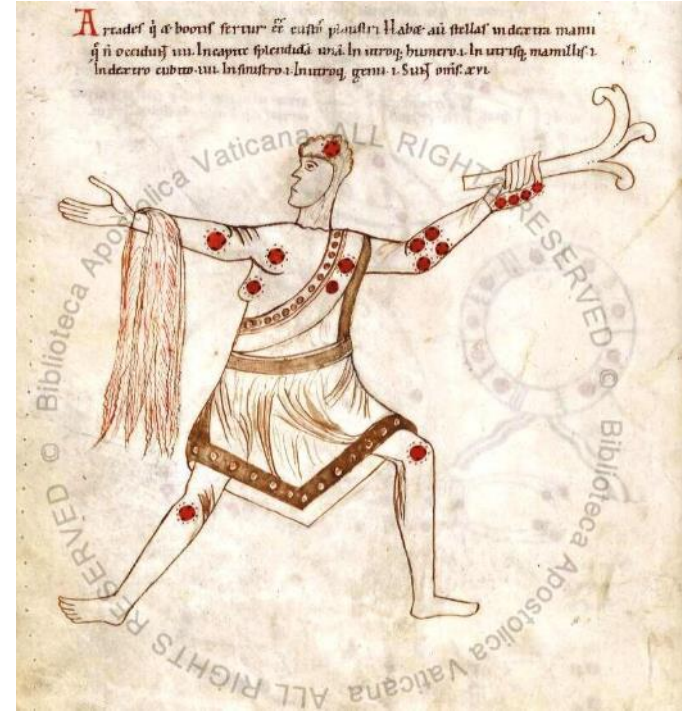 Artades q̄ & bootis fertur ēē custos plaustri. Habet au stellas in dextra manu
q̄ n̄ occidunt .iiii. In capite splendidā unā. In utroq; humero .i. In utrisq; mamillis .i.
In dextro cubito .iiii. In sinistro .i. In utroq; genu .i. Sunt om̄s .xvi.
© Biblioteca Apostolica Vaticana ALL RIGHTS RESERVED
© Biblioteca Apostolica Vaticana ALL RIGHTS RESERVED